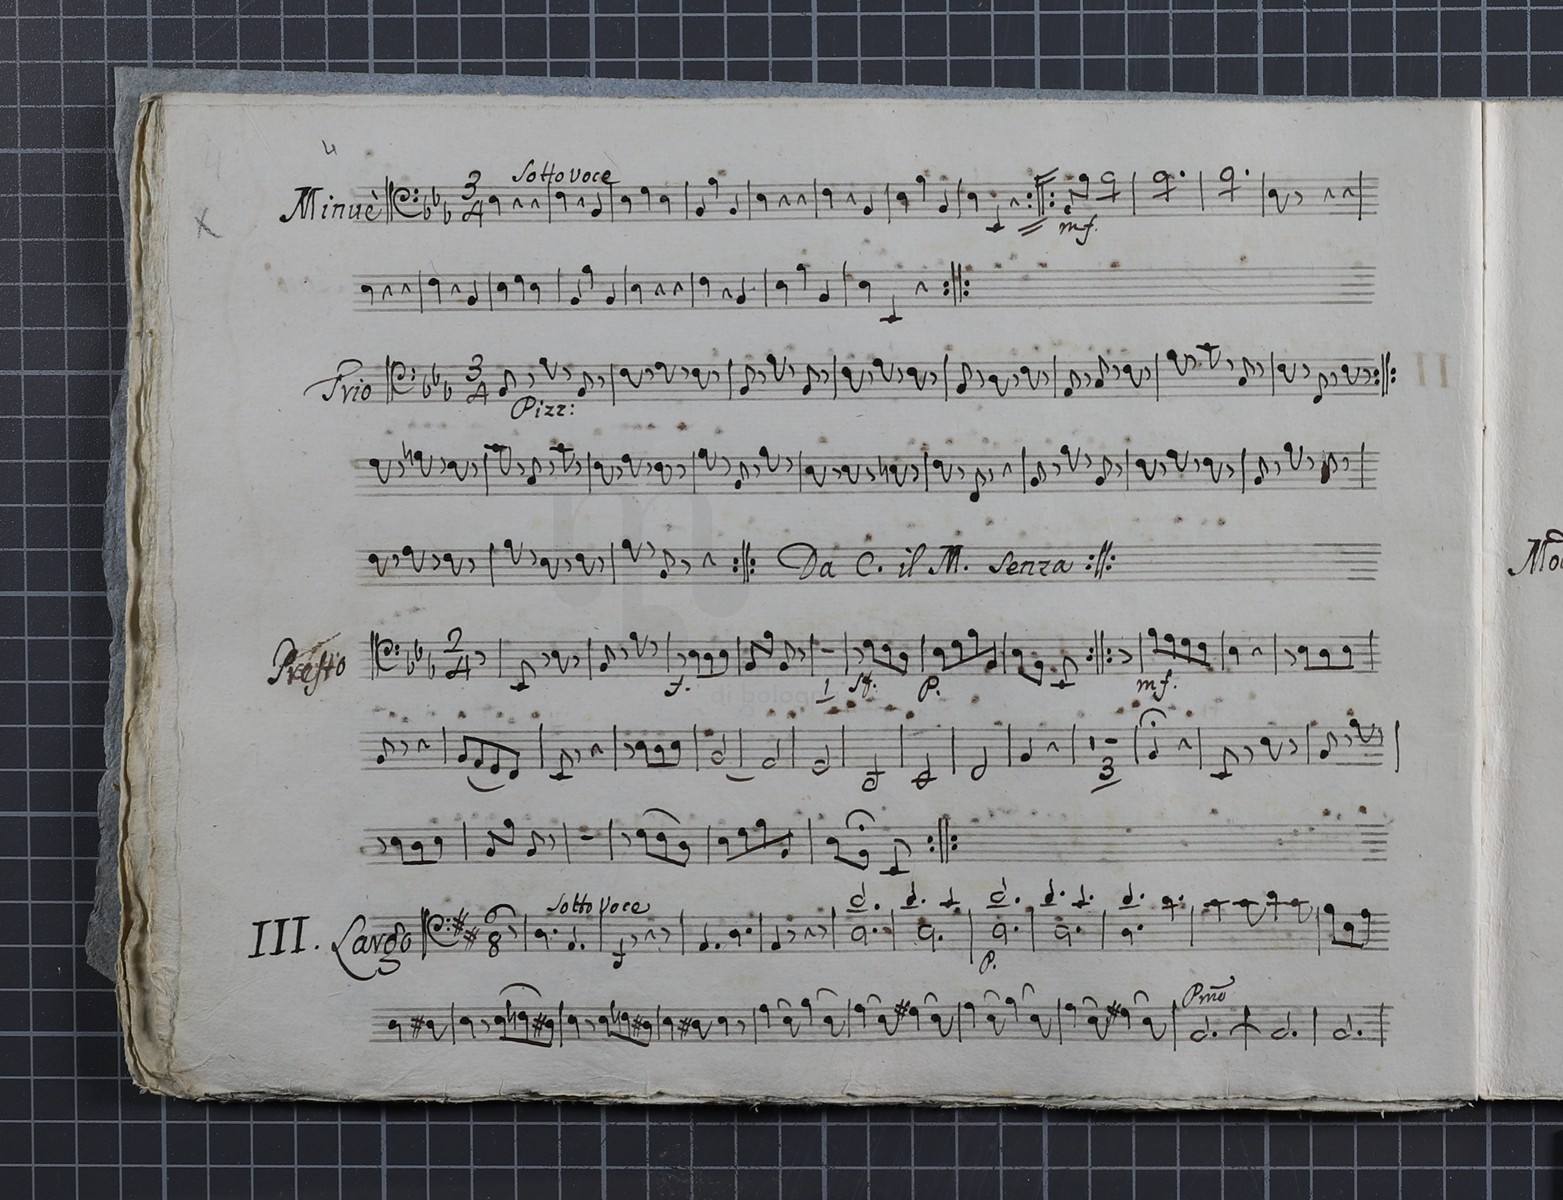 4
Minuè 3/4 Sotto voce
mf.
Trio 3/4
Pizz:
Da C. il M. Senza
Presto 2/4
f. 1 sf. p. mf.
3
III. Largo 8 Sotto voce
p.
Pmo